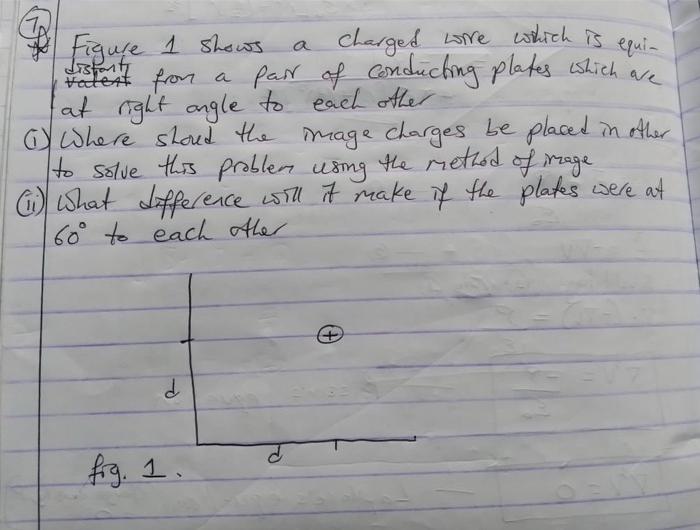 7
Figure 1 shows a charged wire which is equi-
distant from a pair of conducting plates which are
at right angle to each other
(i) Where shoud the image charges be placed in other
to solve this problem using the method of image
(ii) What difference will it make if the plates were at
60° to each other
+
d
d
fig. 1.